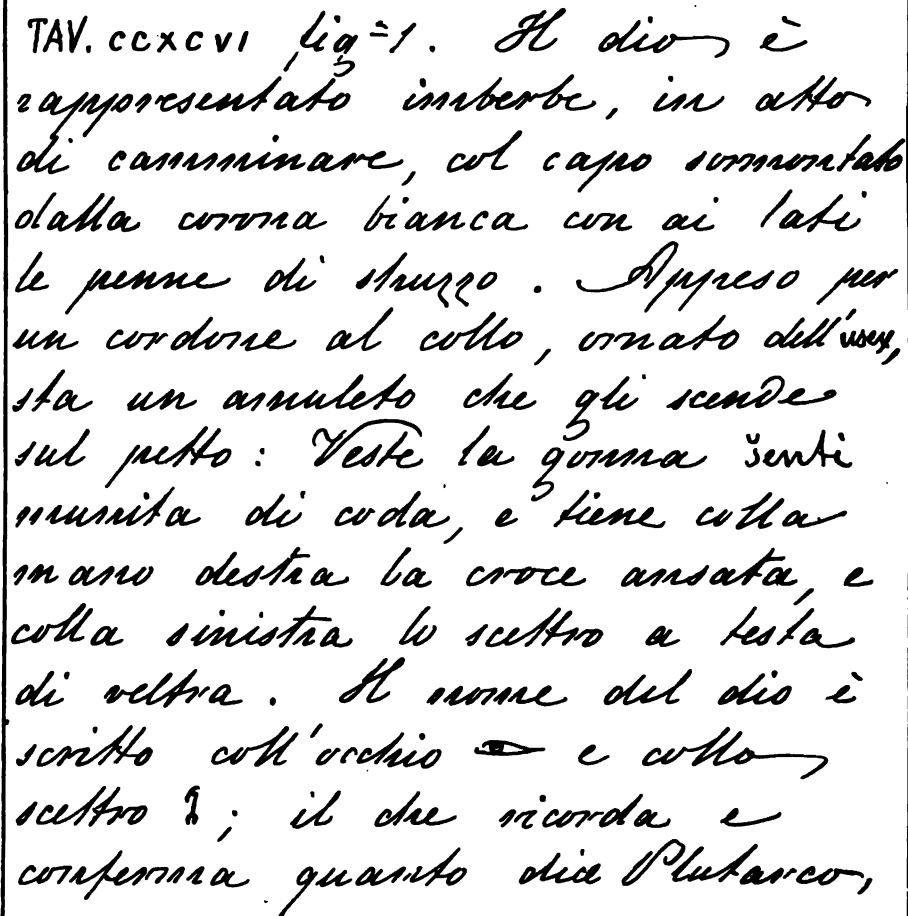 TAV. CCXCVI fig=1. Il dio è
rappresentato imberbe, in atto
di camminare, col capo sormontato
dalla corona bianca con ai lati
le penne di struzzo. Appeso per
un cordone al collo, ornato dell'usex,
sta un amuleto che gli scende
sul petto: Veste la gonna šenti
munita di coda, e tiene colla
mano destra la croce ansata, e
colla sinistra lo scettro a testa
di veltra. Il nome del dio è
scritto coll'occhio 𓁹 e collo
scettro 𓋾; il che ricorda e
conferma quanto dice Plutarco,